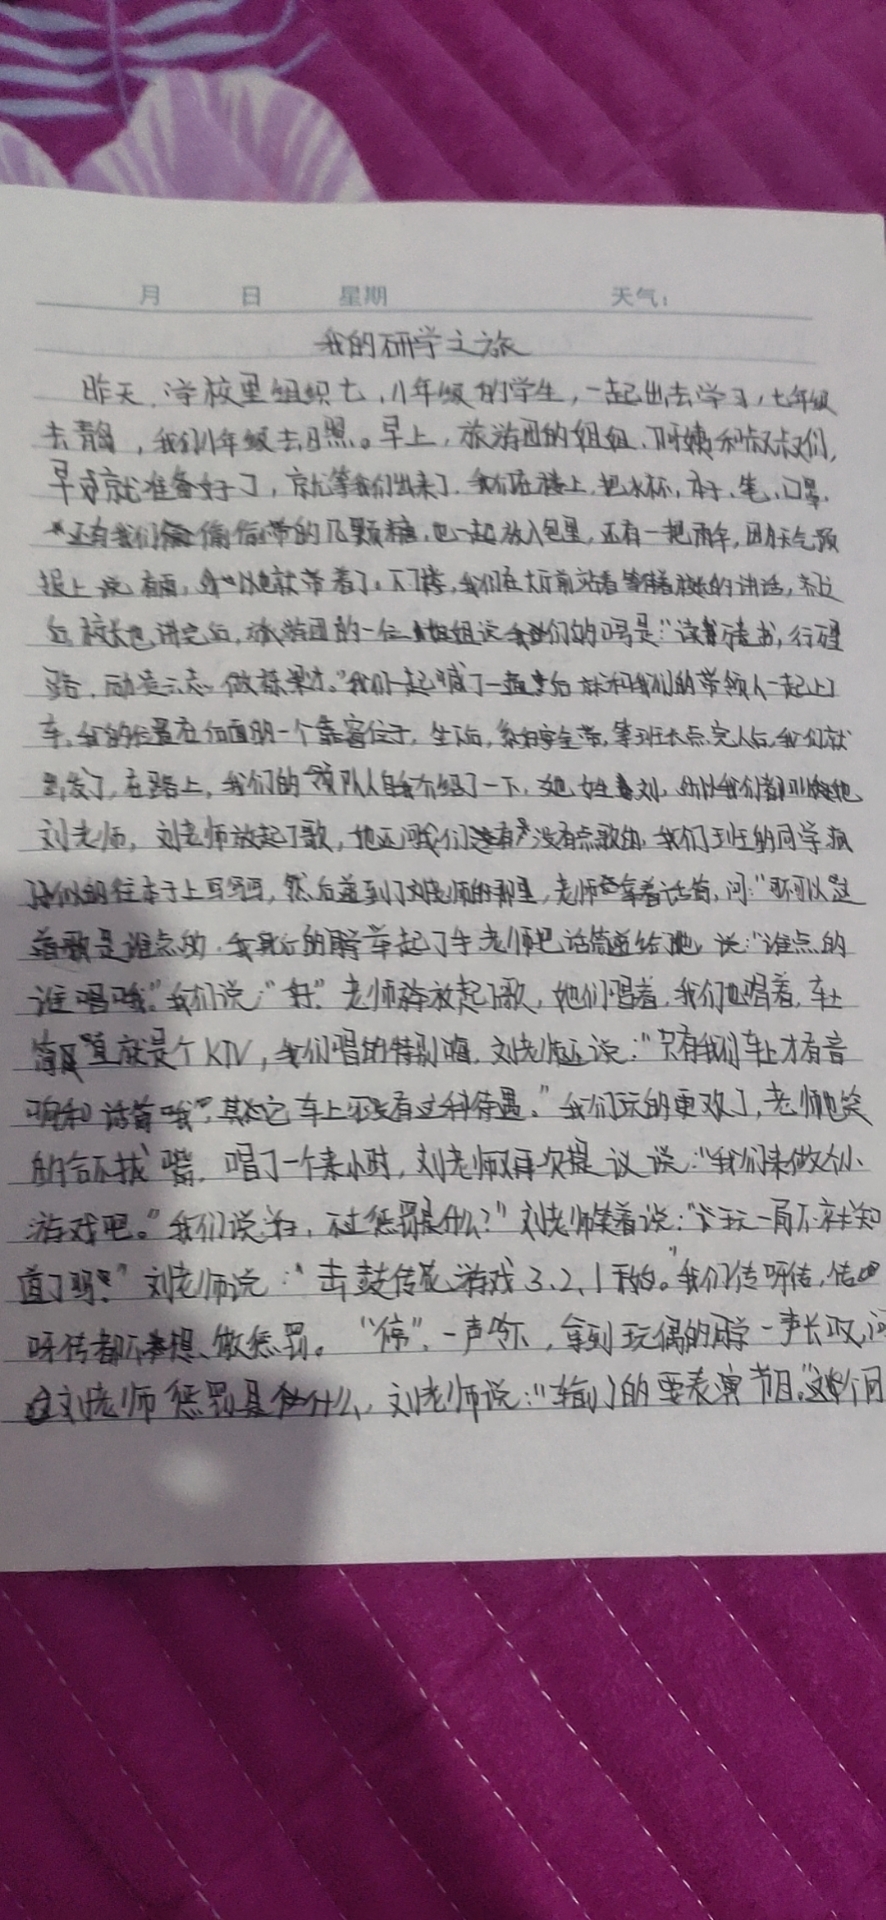 月 日 星期 天气:
我的研学之旅
昨天,学校里组织七,八年级的学生,一起出去学习,七年级
去青岛,我们八年级去日照。早上,旅游团的姐姐、阿姨和叔叔们,
早就准备好了,就等我们出来了.我们在楼上,把水杯,本子,笔,口罩,
还有我们偷偷带的几颗糖,也一起放入包里,还有一把雨伞,因为天气预
报上说有雨,所以也就带着了。下了楼,我们在大厅前站着等着校长的讲话,
后校长也讲完后,旅游团的一位姐姐说我们的口号是:"读万卷书,行万里
路,励志,做栋梁才。"我们一起喊了一遍后就和我们的带领人一起上了
车,我的位置在后面的一个靠窗位子,坐下后,系好安全带,等班长点完人后,我们就
出发了,在路上,我们的领队人自我介绍了一下,她姓刘,所以我们都叫她
刘老师,刘老师放起了歌,她还问我们有没有点歌的,我们班的同学疯
了似的往本子上写,然后递到了刘老师的那里,老师拿着话筒,问:"可不可以这
首歌是谁点的,我身后的同学举起了手老师把话筒递给了她,说:"谁点的
谁唱哦"我们说:"好"老师放起了歌,她们唱着,我们也唱着,车上
简直就是个KTV,我们唱的特别嗨,刘老师还说:"只有我们车上才有音
响和话筒哦",其它车上没有这种待遇。"我们玩的更欢了,老师也笑
的合不拢嘴,唱了一个来小时,刘老师又再次提议说:"我们来做个小
游戏吧。"我们说好,不过惩罚是什么?"刘老师笑着说:"玩一局不就知
道了吗?"刘老师说:"击鼓传花游戏3、2、1开始。"我们传呀传,传呀
呀传都不想做惩罚。"停",一声令下,拿到玩偶的同学一声长叹,问
刘老师惩罚是什么,刘老师说:"输了的要表演节目。"这个同